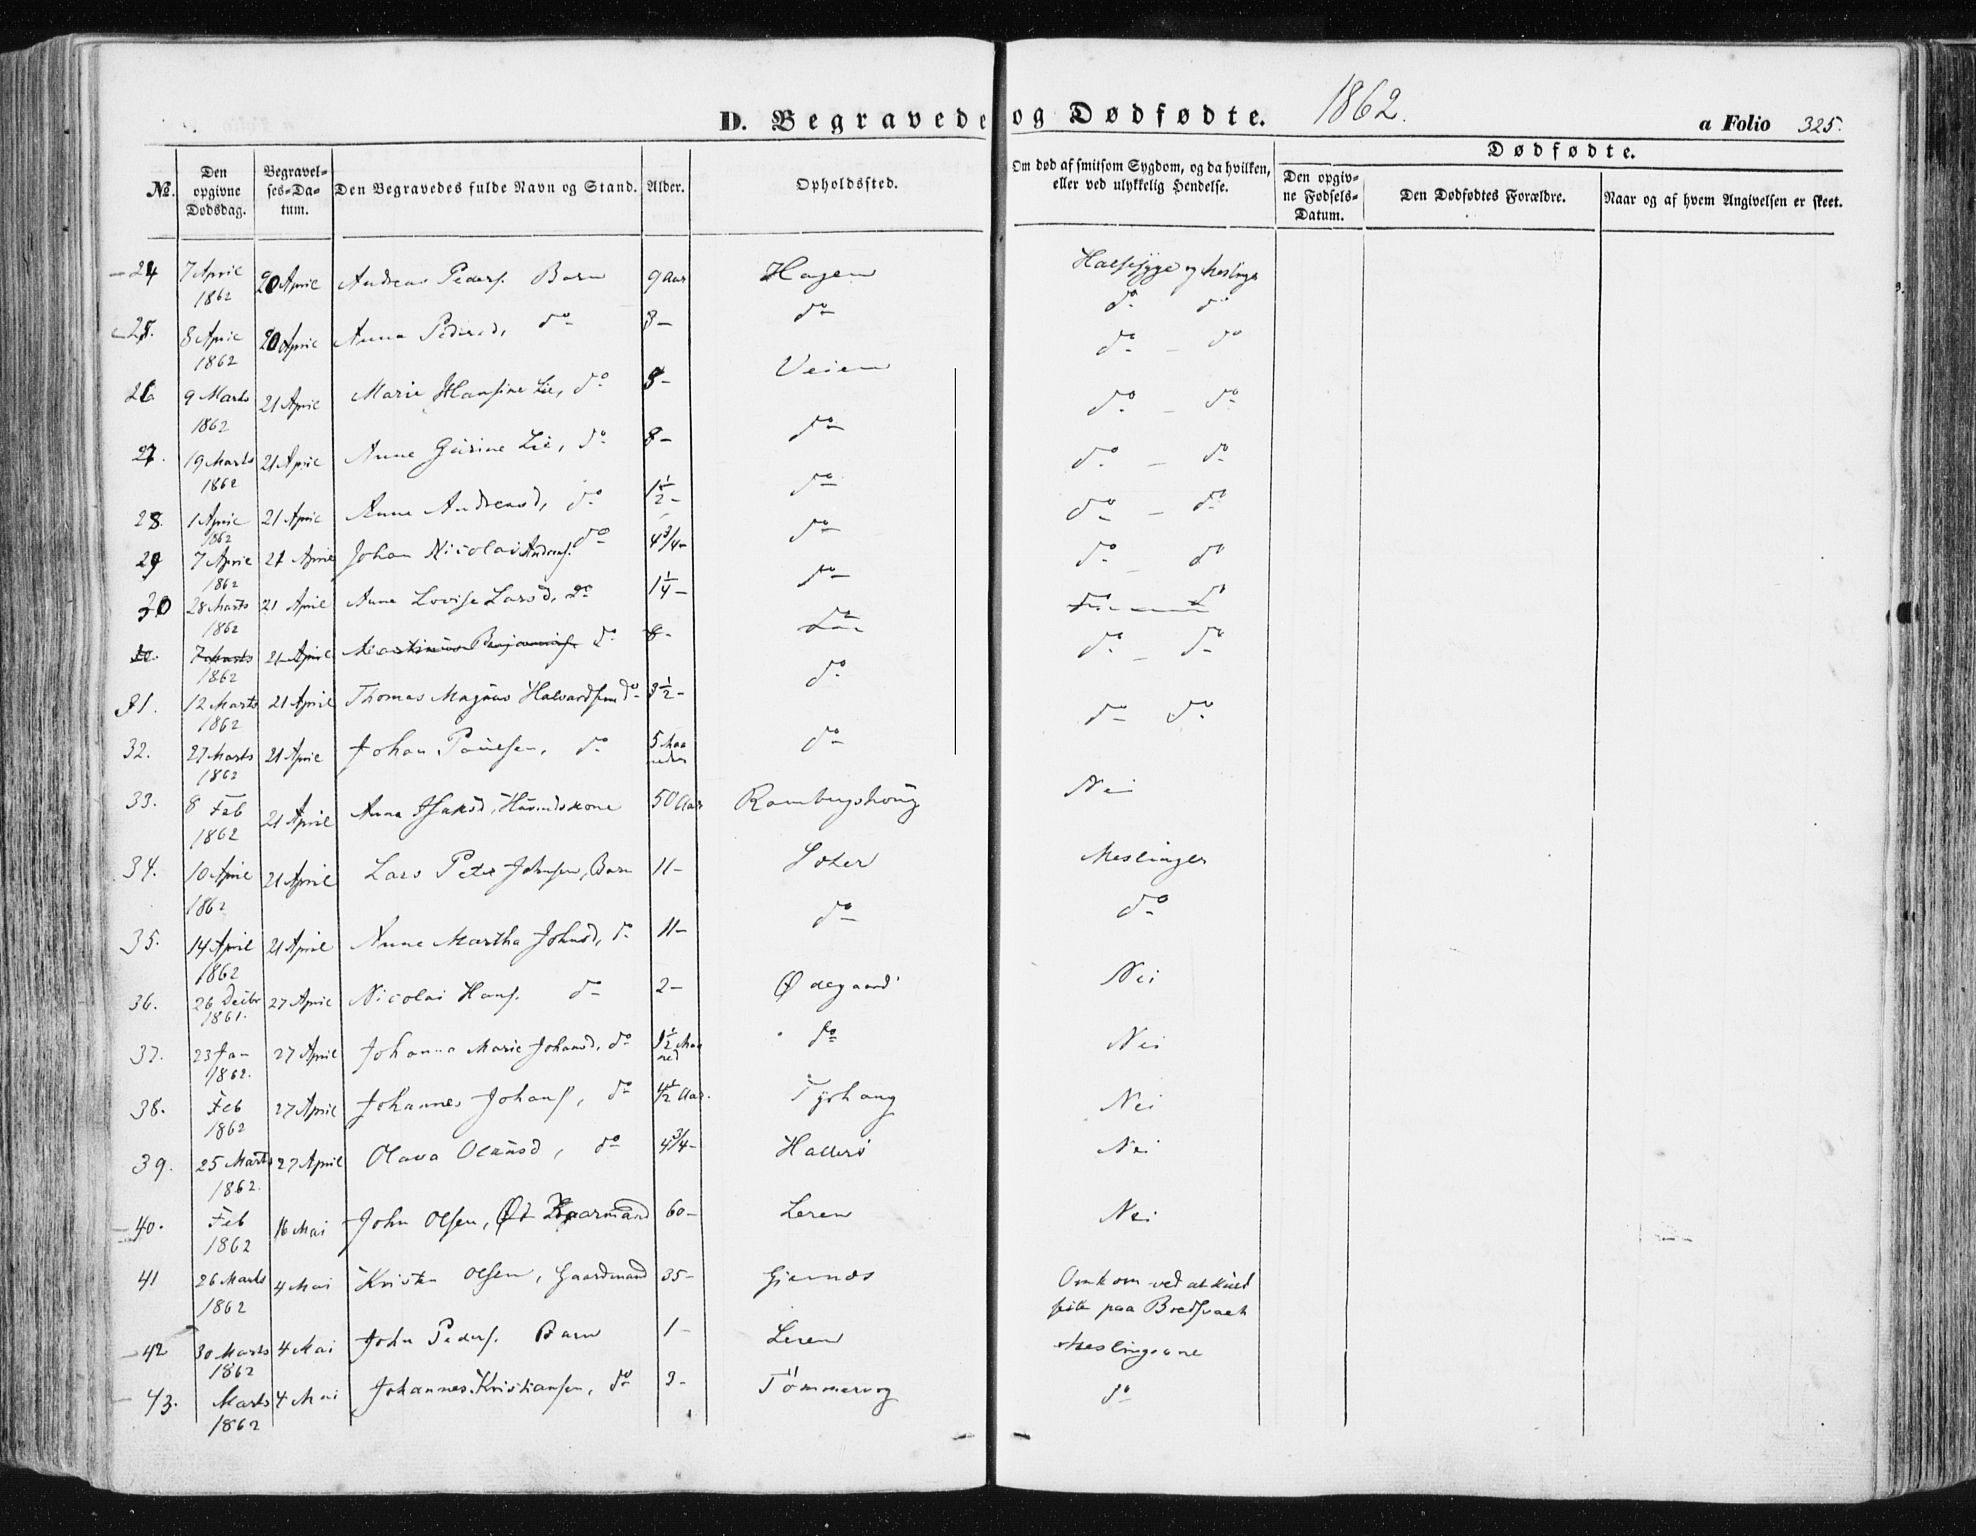 D. Begravede og Dødfødte. 1862. a Folio 325.
Dødfødte.
No. Den opgivne Dødsdag. Begravelses-Datum. Den Begravedes fulde Navn og Stand. Alder. Opholdssted. Om død af smitsom Sygdom, og da hvilken, eller ved ulykkelig Hendelse. Den opgivne Fødsels-Datum. Den Dødfødtes Forældre. Naar og af hvem Angivelsen er skeet.
24 7 April 1862 20 April Andreas Peders. Barn 9 Aar Hagen Halssyge og Meslinger
25. 8 April 1862 20 April Anna Pedersd, do 8 - do do do
26 9 Marts 1862 21 April Marie Hansine Lie, do 8 - Veien do - do
27. 19 Marts 1862 21 April Anne Gurine Lie, do 8 - do do - do
28. 1 April 1862 21 April Anne Andreasd, do 1½ - do do - do
29 7 April 1862 21 April Johan Nicolai Andreas. do 4 3/4 - do do - do
30 28 Marts 1862 21 April Anne Lovise Larsd, do 1¼ - do do - do
7 Marts 1862 21 April Martinus Benjamins. do 8 - do
31. 12 Marts 1862 21 April Thomas Magnus Halvardsen do 3½ - do do - do
32. 27 Marts 1862 21 April Johan Paulsen, do 5 Maaneder do do do
33. 8 Feb 1862 21 April Anna Isaksd, Huusmandskone 50 Aar Rambergshoug Nei
34. 10 April 1862 21 April Lars Peter Johnsen, Barn 11 - Soter Meslinger
35. 14 April 1862 21 April Anne Martha Johnsd, do 11 - do do
36. 26 Decbr 1861. 27 April Nicolai Hans. do 2 - Ødegaard Nei
37. 23 Jan 1862. 27 April Johanna Marie Johansd, do 1½ Maaned do Nei
38. Feb 1862 27 April Johannes Johans, do 4½ Aar. Tyrhaug Nei
39. 25 Marts 1862. 27 April Olava Olausd, do 4 3/4 - Hallerö Nei
40. Feb 1862 16 Mai John Olsen, 60 - Leren Nei
41 26 Marts 1862 4 Mai Kristen Olsen, Gaardmand 35 - Gjernes Omkom ved at
paa
42 30 Marts 1862 4 Mai John Peders. Barn 1 - Leren Meslingerne
43. Marts 1862 4 Mai Johannes Kristiansen, do 3 - Tömmervog do